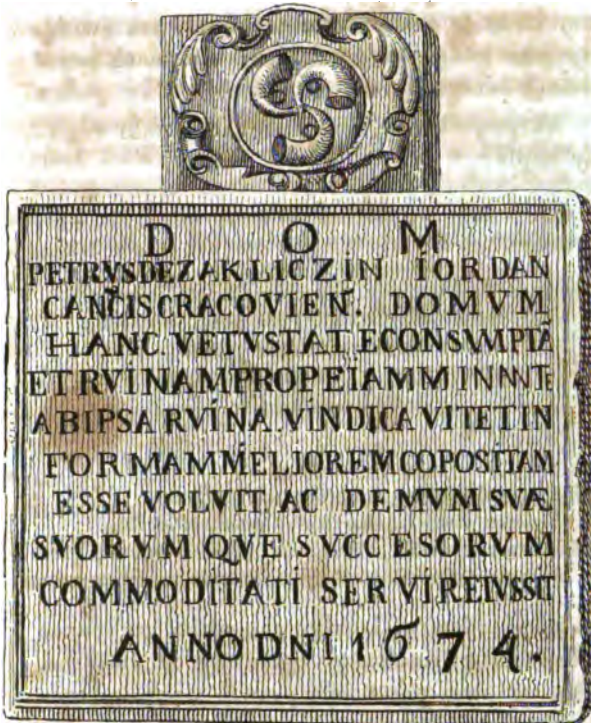 D O M
PETRVS DE ZAKLICZIN IORDAN
CANCIS CRACOVIEN. DOMVM
HANC VETVSTATE CONSVMPTÃ
ET RVINAM PROPE IAM MINANTE
AB IPSA RVINA. VINDICAVIT ET IN
FORMAM MELIOREM COPOSITAM
ESSE VOLVIT AC DEMVM SVÆ
SVORVM QVE SVCCESORVM
COMMODITATI SERVIRE IVSSIT
ANNO DNI 1674.